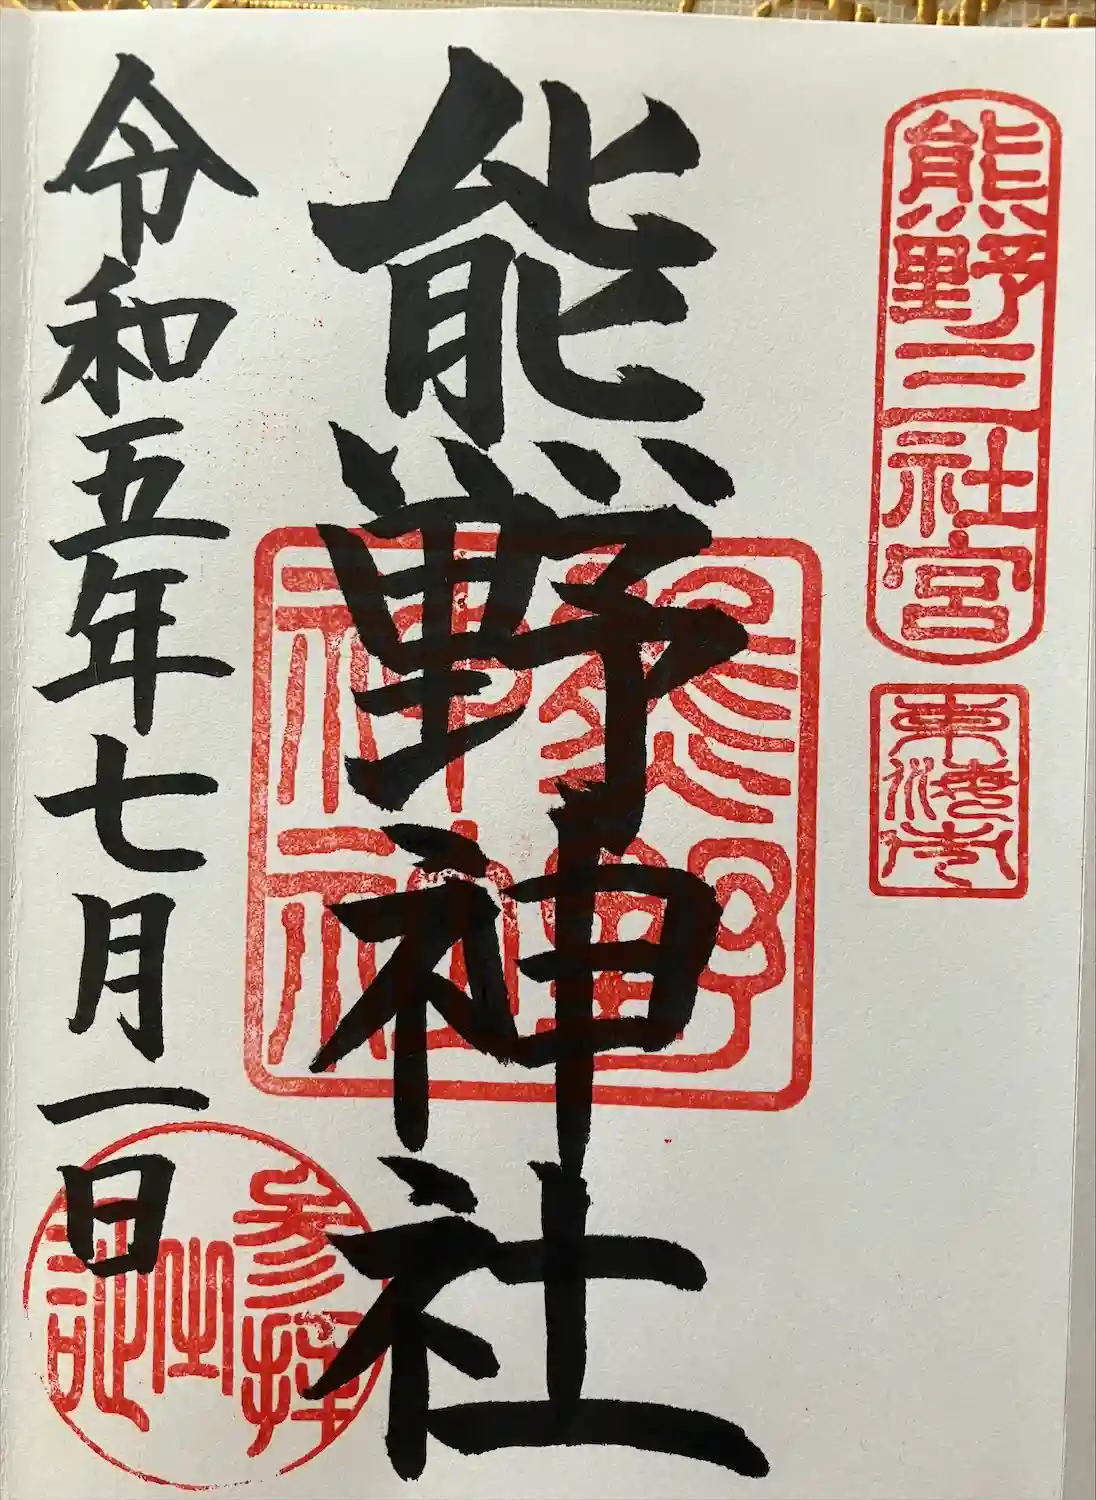 熊野三社宮
熊野神社
熊野
神社
令和五年七月一日
参拝